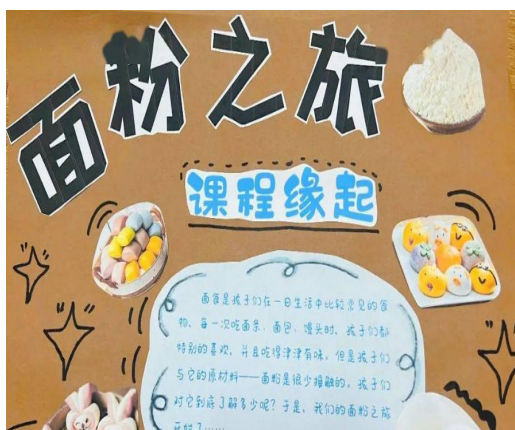 面粉之旅
课程缘起
面食是孩子们在一日生活中比较常见的食
物，每一次吃面条、面包、馒头时，孩子们都
特别的喜欢，并且吃得津津有味，但是孩子们
与它的原材料——面粉是很少接触的，孩子们
对它到底了解多少呢？于是，我们的面粉之旅
开始了……